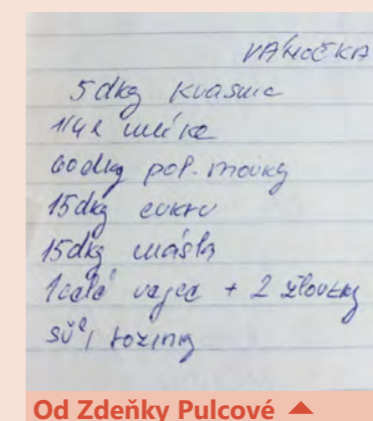 VÁNOČKA
5 dkg kvasnic
1/4 l mléka
60 dkg pol. mouky
15 dkg cukru
15 dkg másla
1 celé vejce + 2 žloutky
sůl, rozinky
Od Zdeňky Pulcové ▲